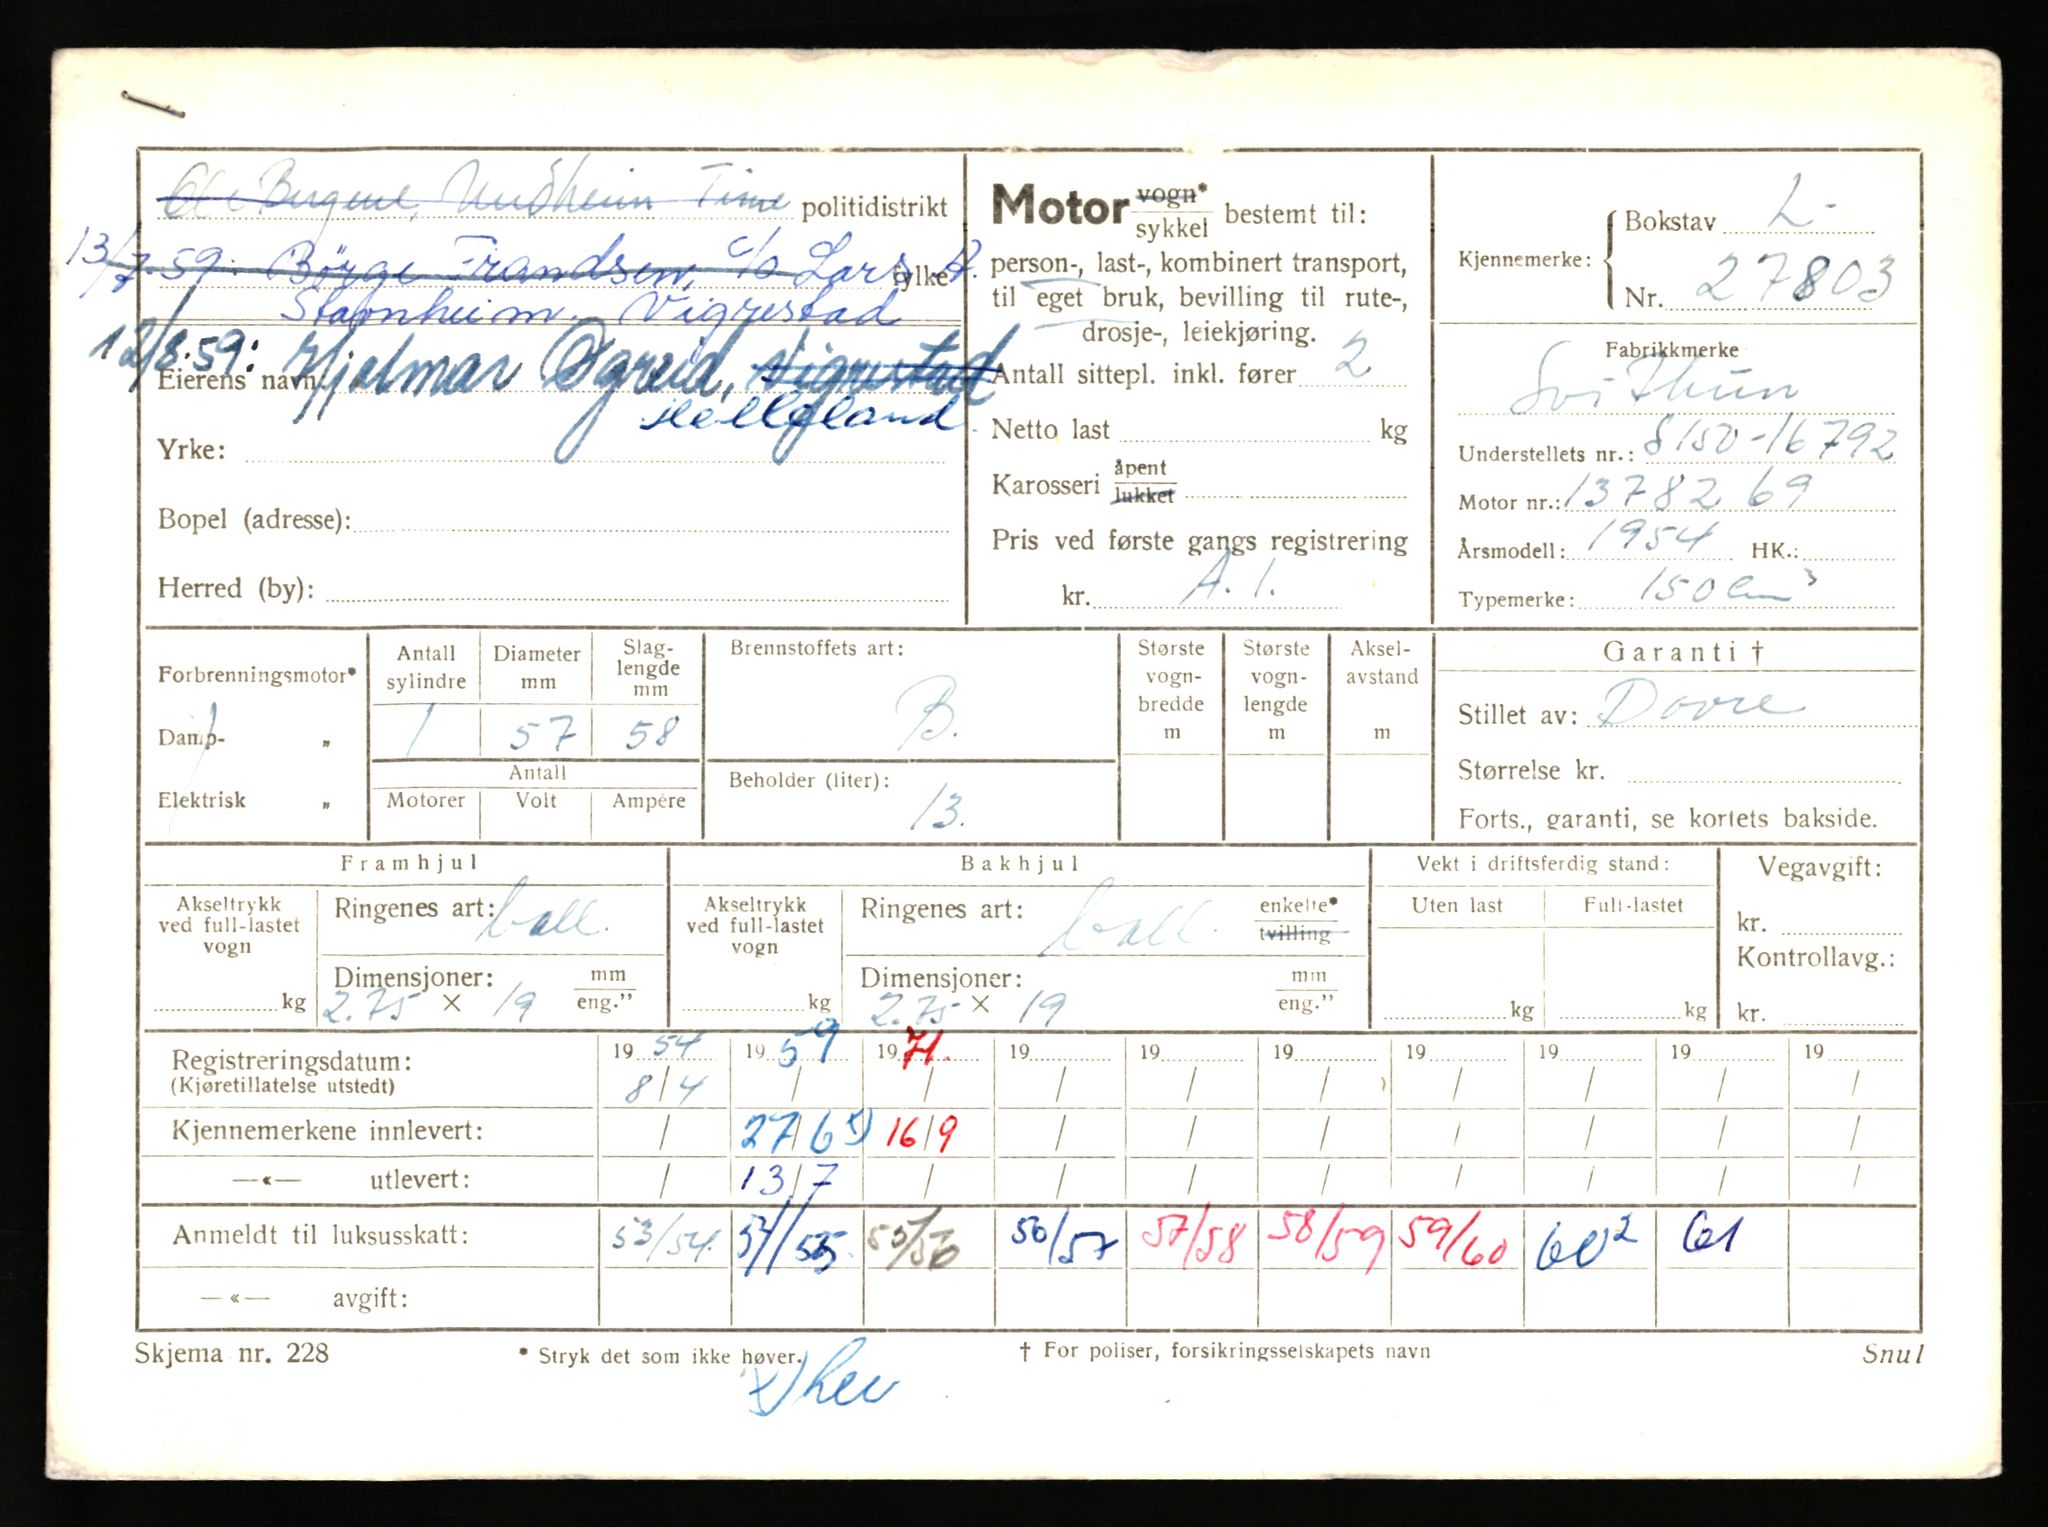 Ole Bergene, Undheim Time politidistrikt
13/7.59. Børge Frandsen, c/o Lars A. fylke
Stavnheim. Vigrestad
12/8.59: Hjelmar Øgreid, Vigrestad
Eierens navn
Helleland.
Yrke:
Bopel (adresse):
Herred (by):
Motor vogn*
sykkel bestemt til:
person-, last-, kombinert transport,
til eget bruk, bevilling til rute-,
drosje-, leiekjøring.
Antall sittepl. inkl. fører 2
Netto last kg
Karosseri åpent
lukket
Pris ved første gangs registrering
kr. A. 1.
Kjennemerke: Bokstav L-
Nr. 27803
Fabrikkmerke
Svithun
Understellets nr.: 8150-16792
Motor nr.: 1378269
Årsmodell: 1954 HK.:
Typemerke: 150 cm³
Forbrenningsmotor*
Damp- „
Elektrisk „
Antall sylindre Diameter mm Slaglengde mm
1 57 58
Antall
Motorer Volt Ampére
Brennstoffets art:
B.
Beholder (liter):
13.
Største vogn-bredde m
Største vogn-lengde m
Aksel-avstand m
Garanti †
Stillet av: Dovre
Størrelse kr.
Forts., garanti, se kortets bakside.
Framhjul
Akseltrykk ved full-lastet vogn
kg
Ringenes art: ball.
Dimensjoner: mm
2.75 × 19 eng.”
Bakhjul
Akseltrykk ved full-lastet vogn
kg
Ringenes art: ball. enkelte*
tvilling
Dimensjoner: mm
2.75 × 19 eng.”
Vekt i driftsferdig stand:
Uten last Full-lastet
kg kg
Vegavgift:
kr.
Kontrollavg.:
kr.
Registreringsdatum: 19 54 19 59 19 71. 19 19 19 19 19 19 19
(Kjøretillatelse utstedt) 8/4 / / / / / / / / /
Kjennemerkene innlevert: / 27/6 x) 16/9 / / / / / / /
—«— utlevert: / 13/7 / / / / / / / /
Anmeldt til luksusskatt: 53/54. 54/55. 55/56 56/57 57/58 58/59 59/60 60² 61
—«— avgift:
Skjema nr. 228 * Stryk det som ikke høver. † For poliser, forsikringsselskapets navn Snul
x) lev